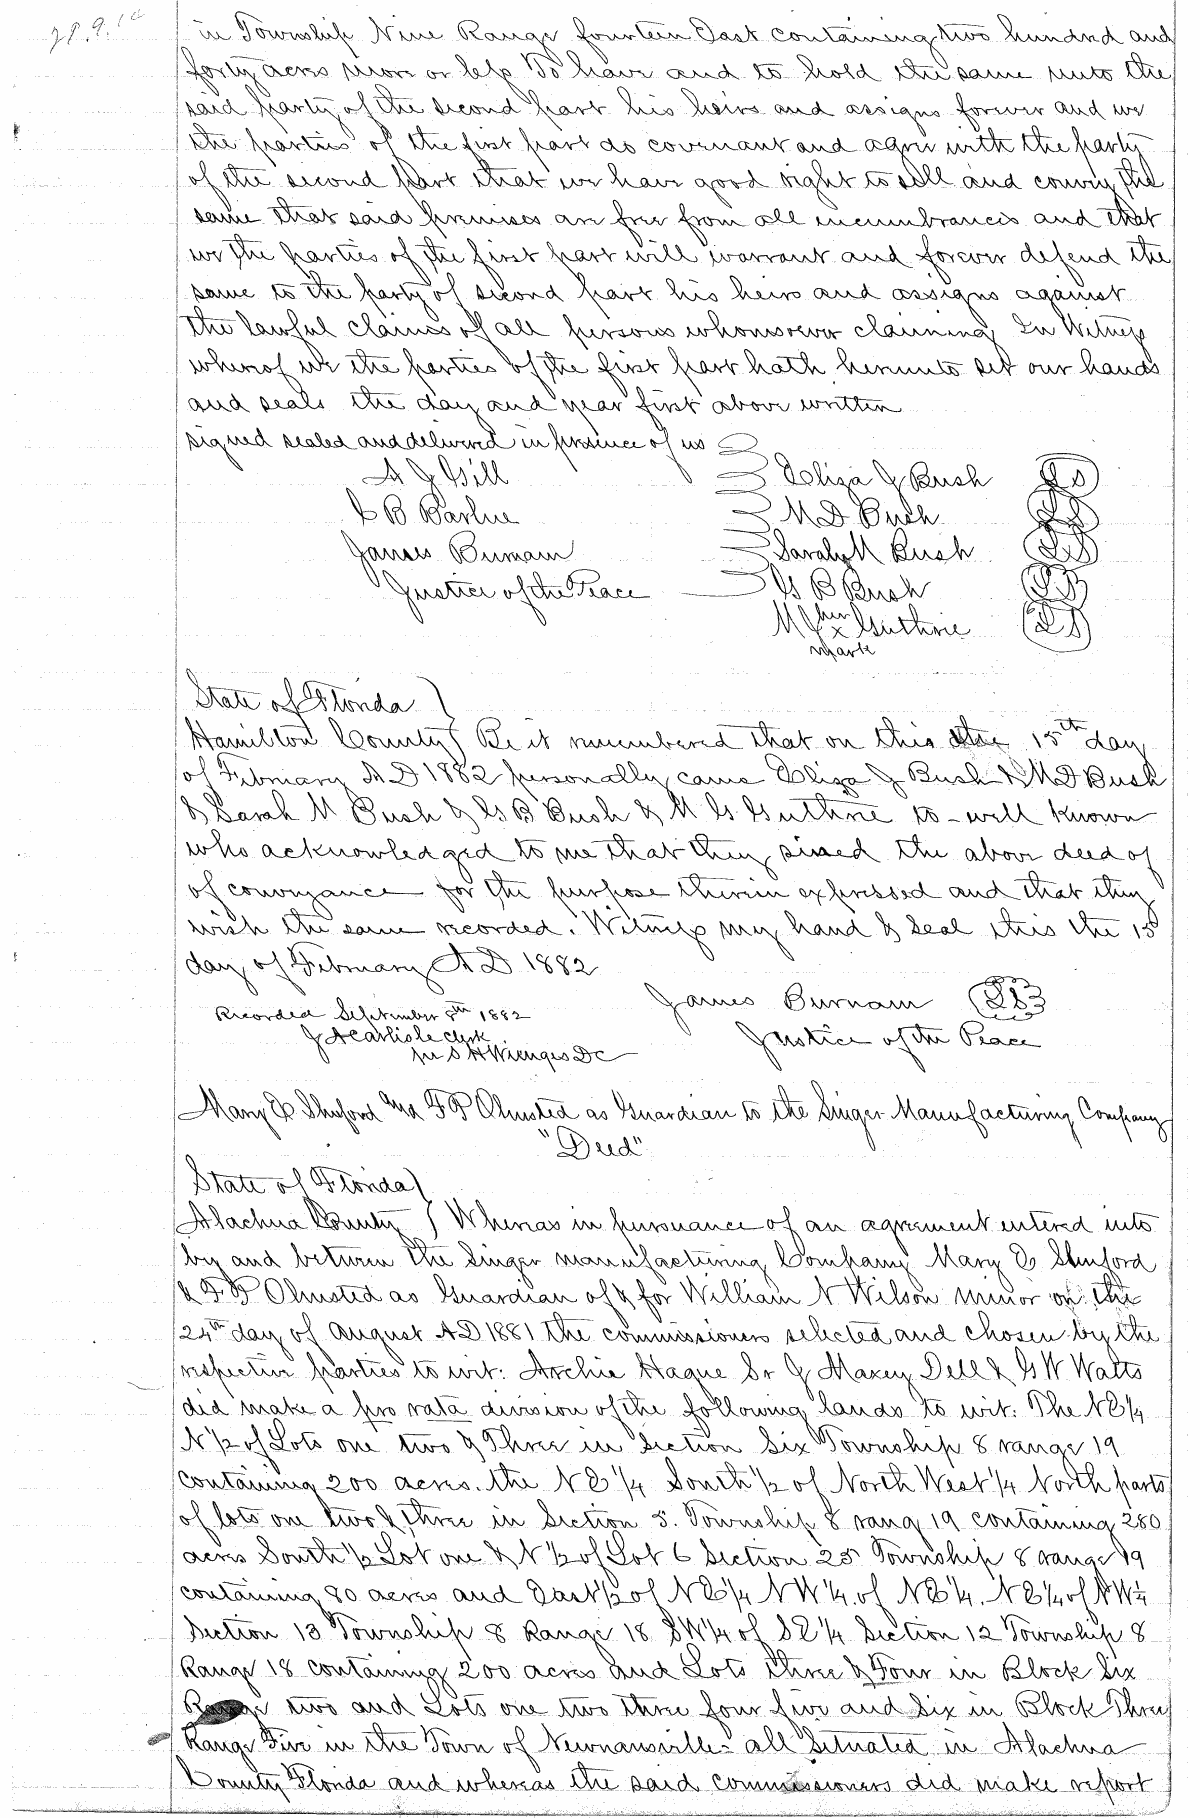 in Township Nine Range fourteen East containing two hundred and
forty acres more or less To have and to hold the same unto the
said party of the second part his heirs and assigns forever and we
the parties of the first part do covenant and agree with the party
of the second part that we have good right to sell and convey the
same that said premises are free from all incumbrances and that
we the parties of the first part will warrant and forever defend the
same to the party of second part his heirs and assigns against
the lawful claims of all persons whomsoever claiming In Witness
whereof we the parties of the first part hath hereunto set our hands
and seals the day and year first above written
signed sealed and delivered in presence of us
A J Gill Eliza J Bush LS
B M D Bush LS
James Burnam Sarah M Bush LS
Justice of the Peace G B Bush LS
M G her x Guthrie LS
mark
State of Florida )
Hamilton County ) Be it remembered that on this the 15th day
of February A D 1882 personally came Eliza J Bush & M D Bush
& Sarah M Bush & G B Bush & M G Guthrie to-well known
who acknowledged to me that they sined the above deed of
of conveyance for the purpose therein expressed and that they
wish the same recorded. Witness my hand & seal this the 15
day of February A D 1882
James Burnam LS
Recorded September 8th 1882
J A Carlisle Clerk Justice of the Peace
per S H Wienges DC
Mary E Shuford and F P Olmsted as Guardian to the Singer Manufacturing Company
"Deed"
State of Florida )
Alachua County ) Whereas in pursuance of an agreement entered into
by and between the Singer manufacturing Company Mary E Shuford
& F P Olmsted as Guardian of & for William N Wilson minor on the
24th day of August A D 1881 the commissioners selected and chosen by the
respective parties to wit: Archie Hague Sr J Maxey Dell & G W Watts
did make a pro rata division of the following lands to wit: The NE 1/4
N 1/2 of Lots one two & Three in Section Six Township 8 range 19
containing 200 acres. the NE 1/4 South 1/2 of North West 1/4 North parts
of lots one two & three in Section 5. Township 8 rang 19 containing 280
acres South 1/2 Lot one & N 1/2 of Lot 6 Section 25 Township 8 range 19
containing 80 acres and East 1/2 of NE 1/4 NW 1/4 of NE 1/4. NE 1/4 of NW 1/4
Section 13 Township 8 Range 18 SW 1/4 of SE 1/4 Section 12 Township 8
Range 18 containing 200 acres and Lots three & Four in Block Six
Range two and Lots one two three four five and Six in Block Three
Range Five in the Town of Newnansville - all Situated in Alachua
County Florida and whereas the said commissioners did make report